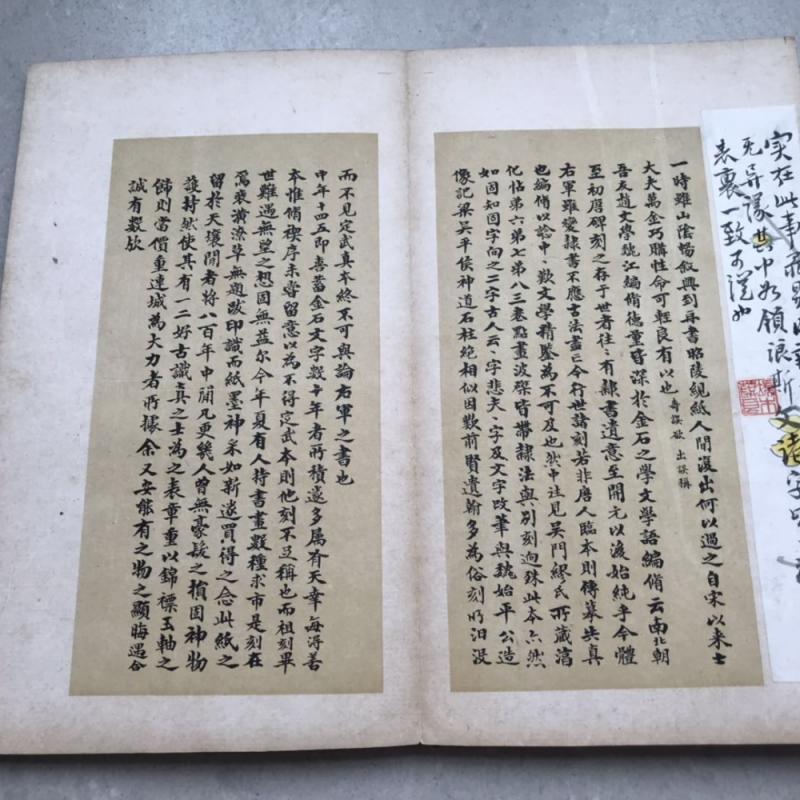 实在此事
无异议其中右领浪斯文诸
表里一致可说也
一時雖山陰暢叙興到再書昭陵覛紙人間復出何以過之自宋以來士
大夫萬金巧購性命可輕良有以也奇誤欲出誤稱
吾友趙文學魏江編脩德量皆深於金石之學文學語編脩云南北朝
至初唐碑刻之存于世者往〻有隸書遺意至開元以後始純乎今體
右軍雖變隸書不應古法盡亡今行世諸刻若非唐人臨本則傳摹失真
也編脩以諗中〻歎文學精鑒為不可及也然中注見吳門繆氏所藏淳
化帖第六第七第八三卷點畫波磔皆帶隸法與別刻迥殊此本亦然
如因知固字向之二字古人云〻字悲夫〻字及文字改筆與魏始平公造
像記梁吳平侯神道石柱絕相似因歎前賢遺翰多為俗刻所汨沒
而不見定武真本終不可與論右軍之書也
中年十四五即喜蓄金石文字數十年者所積遂多屬有天幸每得善
本惟脩禊序未嘗留意以為不得定武本則他刻不足稱也而祖刻畢
世難遇無望之想固無益尔今年夏有人持書畫數種求市是刻在
焉裝潢潦草無題跋印識而紙墨神采如新遂買得之念此紙之
留於天壤間者將八百年中間凡更幾人曾無豪髮之損固神物
護持然使其有一二好古識真之士為之表章重以錦褾玉軸之
飾則當價重連城為大力者所攘余又安能有之物之顯晦遇合
誠有數歟